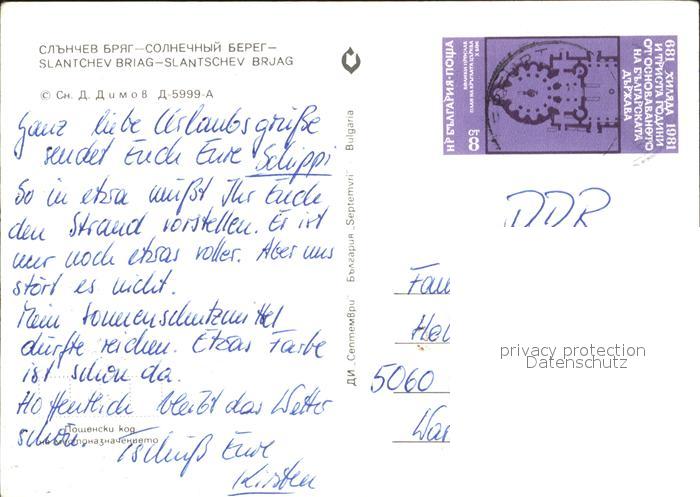 СЛЪНЧЕВ БРЯГ—СОЛНЕЧНЫЙ БЕРЕГ—
SLANTCHEV BRIAG—SLANTSCHEV BRJAG
© Сн. Д. Димов Д-5999-А
Ganz liebe Urlaubsgrüße
sendet Euch Eure Schippi
So in etwa müßt Ihr Euch
den Strand vorstellen. Er ist
nur noch etwas voller. Aber uns
stört es nicht.
Mein Sonnenschutzmittel
dürfte reichen. Etwas Farbe
ist schon da.
Hoffentlich bleibt das Wetter
schön.
Пощенски код
на местоназначението
Tschüß Eure
Kirsten
ДИ „Септември" България „Septemvri" Bulgaria
НР БЪЛГАРИЯ·ПОЩА
8 ст
681 ХИЛЯДА 1981
И ТРИСТА ГОДИНИ
ОТ ОСНОВАВАНЕТО
НА БЪЛГАРСКАТА
ДЪРЖАВА
DDR
Fam
5060
privacy protection
Datenschutz